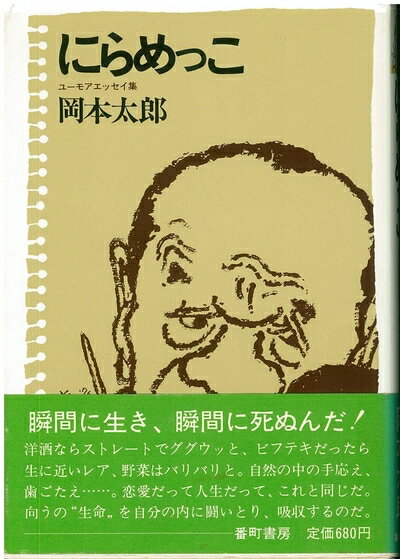 にらめっこ
ユーモアエッセイ集
岡本太郎
瞬間に生き、瞬間に死ぬんだ！
洋酒ならストレートでググウッと、ビフテキだったら
生に近いレア、野菜はバリバリと。自然の中の手応え、
歯ごたえ……。恋愛だって人生だって、これと同じだ。
向うの〝生命〟を自分の内に闘いとり、吸収するのだ。
番町書房 定価680円